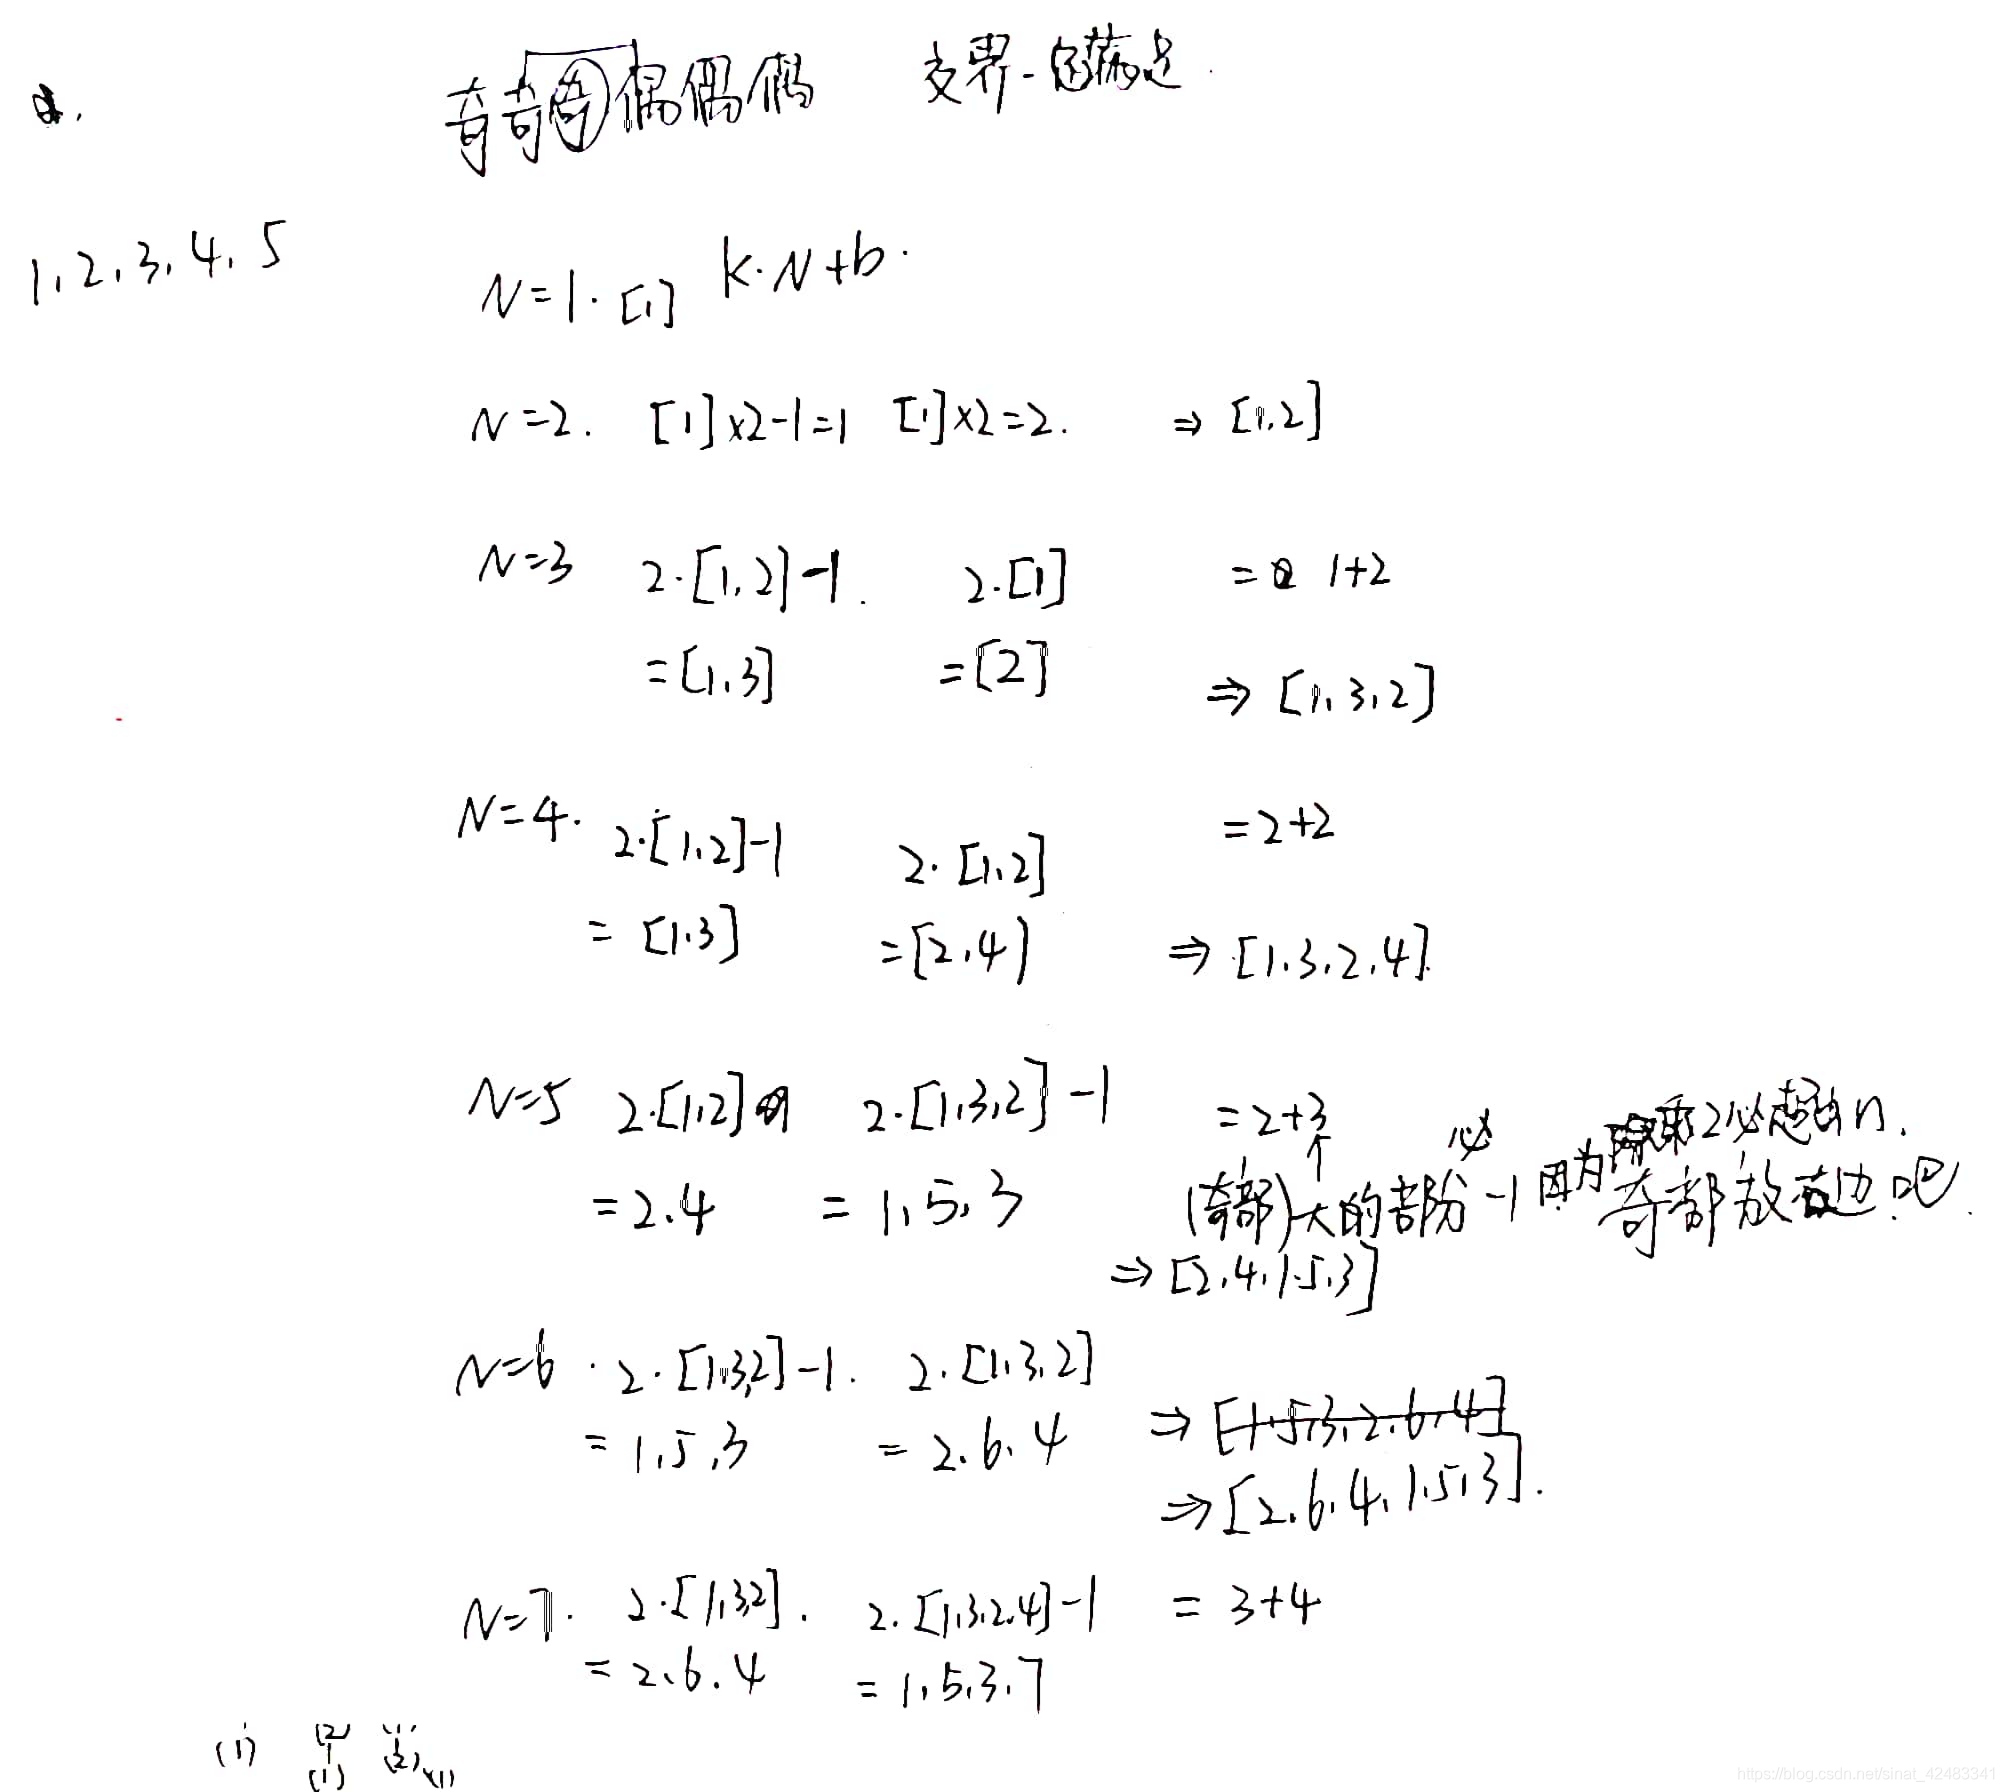 奇奇奇偶偶偶 交界-定满足.
1,2,3,4,5
N=1. [1] k·N+b.
N=2. [1]×2-1=1 [1]×2=2. ⇒ [1,2]
N=3 2·[1,2]-1. 2·[1] = 1+2
=[1,3] =[2] ⇒ [1,3,2]
N=4. 2·[1,2]-1 2·[1,2] =2+2
= [1,3] =[2,4] ⇒ [1,3,2,4].
N=5 2·[1,2] 2·[1,3,2]-1 =2+3
↑ 必 因为乘2必超出n.
=2,4 = 1,5,3 (奇部)大的部分-1 奇部放右边吧.
⇒ [2,4,1,5,3]
N=6 · 2·[1,3,2]-1. 2·[1,3,2] ⇒ [1,5,3,2,6,4]
= 1,5,3 = 2,6,4 ⇒ [2,6,4,1,5,3].
N=7. 2·[1,3,2]. 2·[1,3,2,4]-1 = 3+4
= 2,6,4 = 1,5,3,7
(1) (2) (1)
(1) (2) (1)
https://blog.csdn.net/sinat_42483341